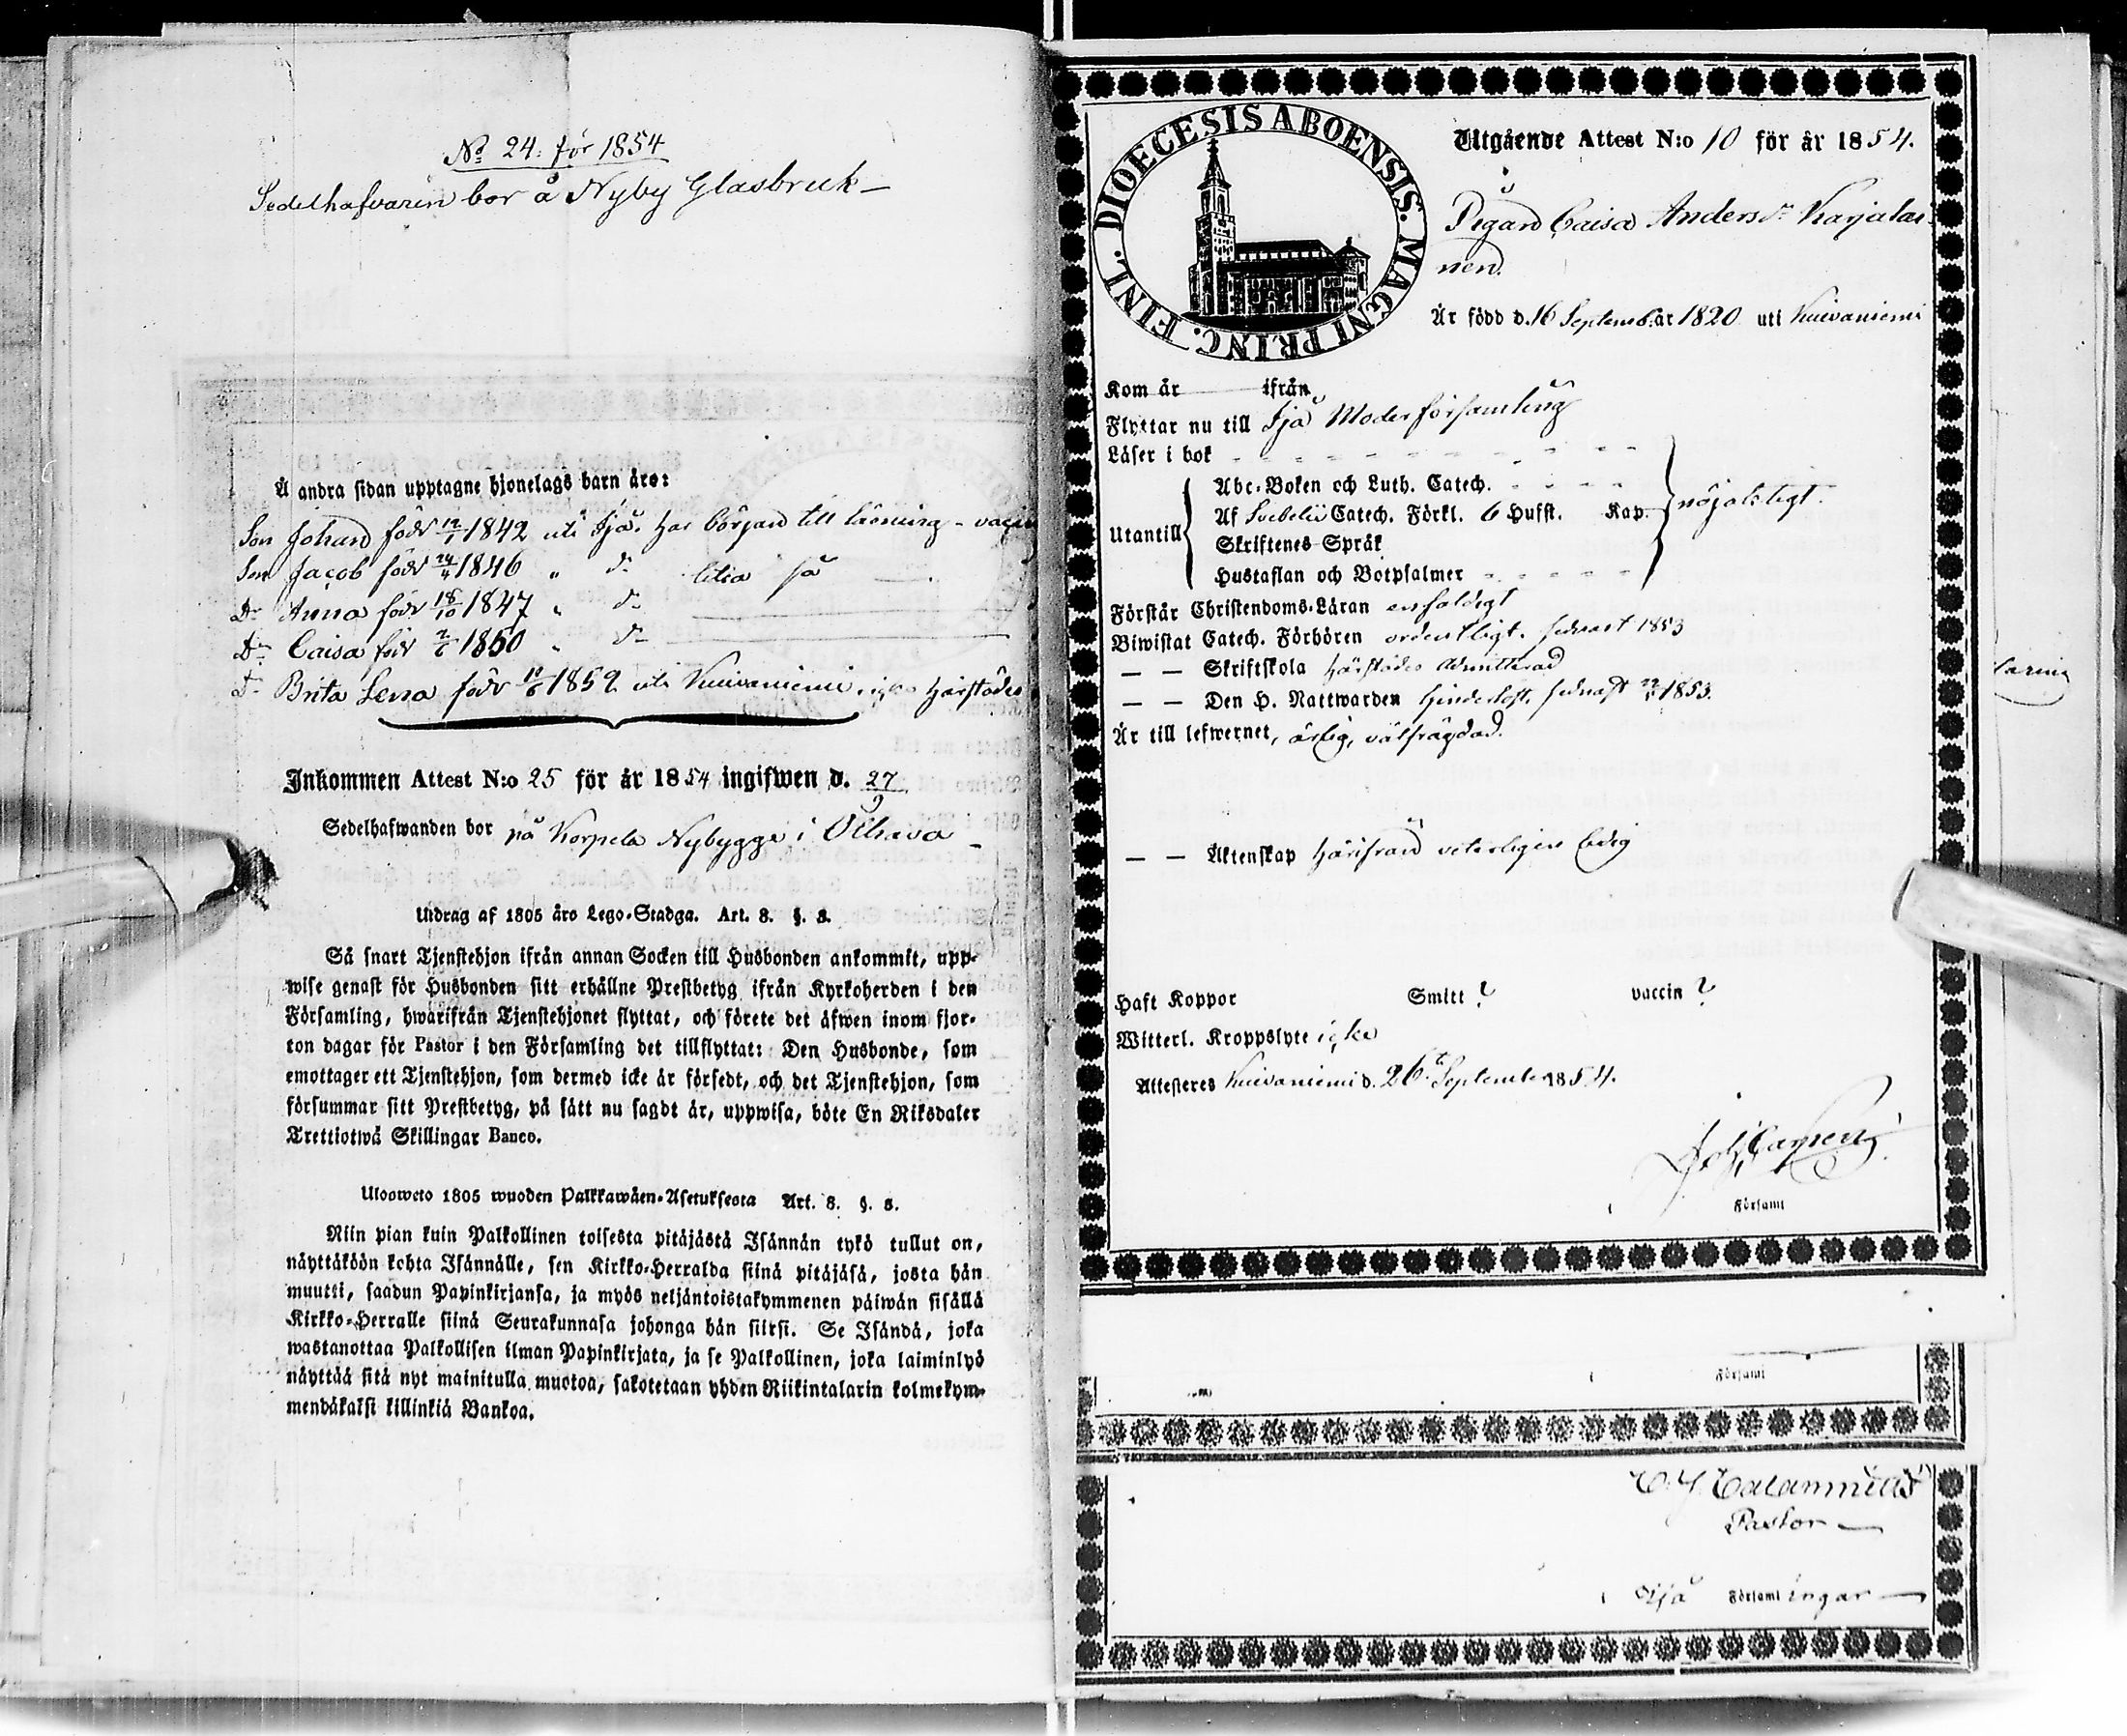 No 24. för 1854
Sedelhafvaren bor å Nyby Glasbruk
Å andra sidan upptagne hjonelags barn äro:
Son Johan född 12/1 1842 uti Ijå. har börjat till läsning - vaccin
Son Jacob född 24/4 1846 " do lilia så
Dr Anna född 18/10 1847 " do
Dr Caisa född 2/6 1850 " do
Dr Brita Lena född 11/6 1852 uti Kuivaniemi härstädes
Inkommen Attest N:o 25 för år 1854 ingifwen d. 27/9
Sedelhafwanden bor på Korpela Nybygge i Olhava
Utdrag af 1805 års Lego-Stadga. Art. 8. §. 8.
Så snart Tjenstehjon ifrån annan Socken till Husbonden ankommit, upp-
wise genast för Husbonden sitt erhållne Prestbetyg ifrån Kyrkoherden i den
Församling, hwarifrån Tjenstehjonet flyttat, och förete det äfwen inom fjor-
ton dagar för Pastor i den Församling det tillflyttat: Den Husbonde, som
emottager ett Tjenstehjon, som dermed icke är försedt, och det Tjenstehjon, som
försummar sitt Prestbetyg, på sätt nu sagdt är, uppwisa, böte En Riksdaler
Trettiotwå Skillingar Banco.
Uloswето 1805 wuoden Palkkawäen-Asetuksesta Art. 8. §. 8.
Niin pian kuin Palkollinen toisesta pitäjästä Isännän tykö tullut on,
näyttäköön kohta Isännälle, sen Kirkko-Herralda siinä pitäjäsä, josta hän
muutti, saadun Papinkirjansa, ja myös neljäntoistakymmenen päiwän sisällä
Kirkko-Herralle siinä Seurakunnasa johonga hän siirsi. Se Isändä, joka
wastanottaa Palkollisen ilman Papinkirjata, ja se Palkollinen, joka laiminlyö
näyttää sitä nyt mainitulla muotoa, sakotetaan yhden Riikintalarin kolmekym-
mendäkaksi killinkiä Bankoa.
DIOECESIS ABOENSIS. MAGNI PRINC. FINL.
Utgående Attest N:o 10 för år 1854.
Pigan Caisa Andersdr Karjalai-
nen.
Är född d. 16 Septemb. år 1820 uti Kuivaniemi
Kom år ifrån
Flyttar nu till Ijå Moderförsamling
Läser i bok
Abc-Boken och Luth. Catech.
Af Svebelii Catech. Förkl. 6 Hufst. Kap. nöjaktigt.
Utantill
Skriftenes Språk
Hustaflan och Botpsalmer
Förstår Christendoms-Läran enfaldigt
Biwistat Catech. Förhören ordentligt. sednast 1853
— — Skriftskola härstädes admitterad
— — Den H. Nattwarden hinderlöst, sednast 1853.
Är till lefwernet, ärlig, välfrägdad.
— — Äktenskap härifrån veterligen ledig
Haft Koppor Smitt ? vaccin ?
Witterl. Kroppslyte icke
Attesteres Kuivaniemi d. 26 September 1854.
Församl
Församl
C. J. Calamnius
Pastor
Ijå Församlingar